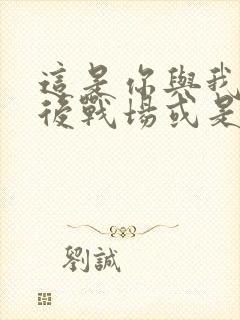 這是你與我
後戰場或是
劉誠